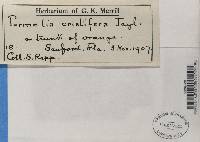 Herbarium of G. K. Merrill
Parmelia cristifera Tayl.
on trunk of orange.
Sanford, Fla. Nov. 1907.
18
Coll. S. Rapp.